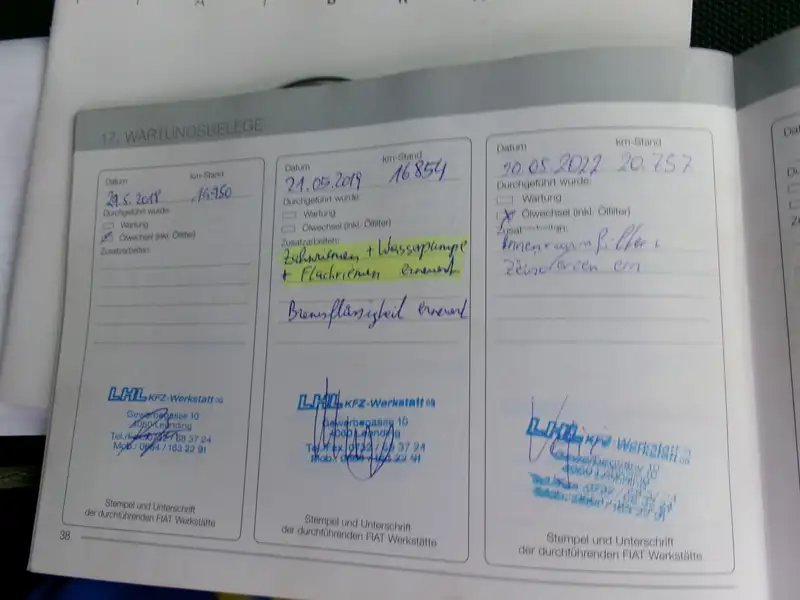 17. WARTUNGSBELEGE
Datum km-Stand
29.5.2018 14950
Durchgeführt wurde:
Wartung
Ölwechsel (inkl. Ölfilter)
Zusatzarbeiten:
LHL KFZ-Werkstatt OG
Gewerbegasse 10
4060 Leonding
Stempel und Unterschrift
der durchführenden FIAT Werkstätte
38
Datum km-Stand
21.05.2019 16854
Durchgeführt wurde:
Wartung
Ölwechsel (inkl. Ölfilter)
Zusatzarbeiten:
Zahnriemen + Wasserpumpe
+ Flachriemen erneuert
Bremsflüssigkeit erneuert
LHL KFZ-Werkstatt OG
Gewerbegasse 10
4060 Leonding
Stempel und Unterschrift
der durchführenden FIAT Werkstätte
Datum km-Stand
20.757
Durchgeführt wurde:
Wartung
Ölwechsel (inkl. Ölfilter)
Innenraumfilter
LHL KFZ-Werkstatt OG
Gewerbegasse 10
4060 Leonding
Stempel und Unterschrift
der durchführenden FIAT Werkstätte